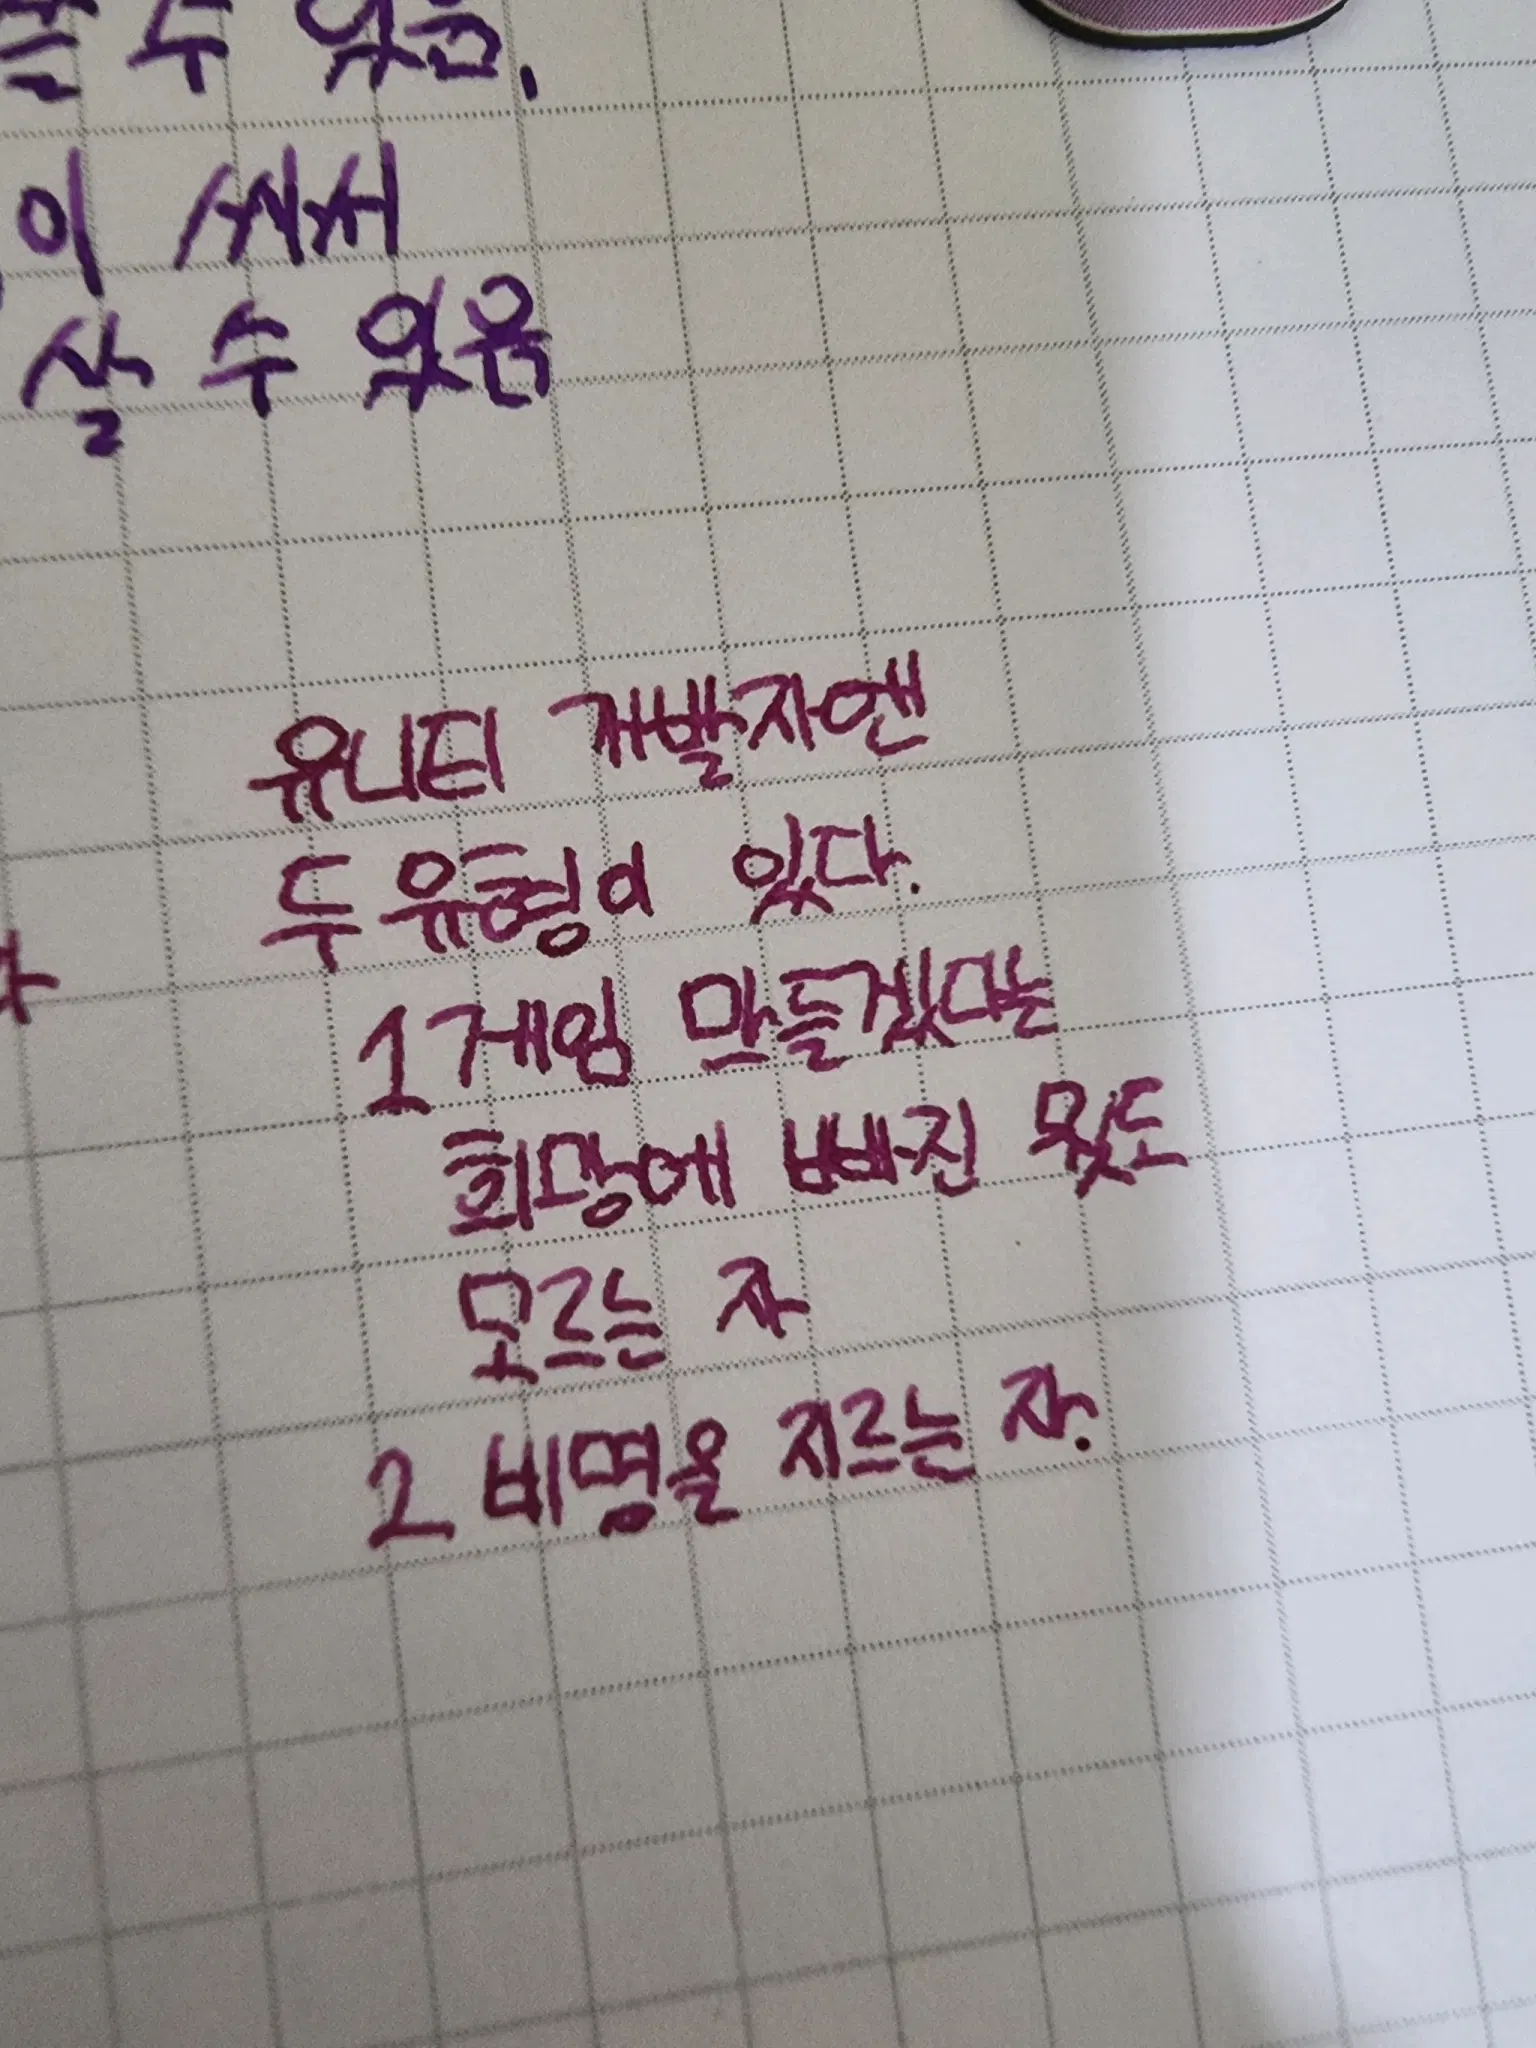 수 있음.
이 써서
살 수 있음
유니티 개발자엔
두 유형이 있다.
1 게임 만들겠다는
희망에 빠진 뭣도
모르는 자
2 비명을 지르는 자.